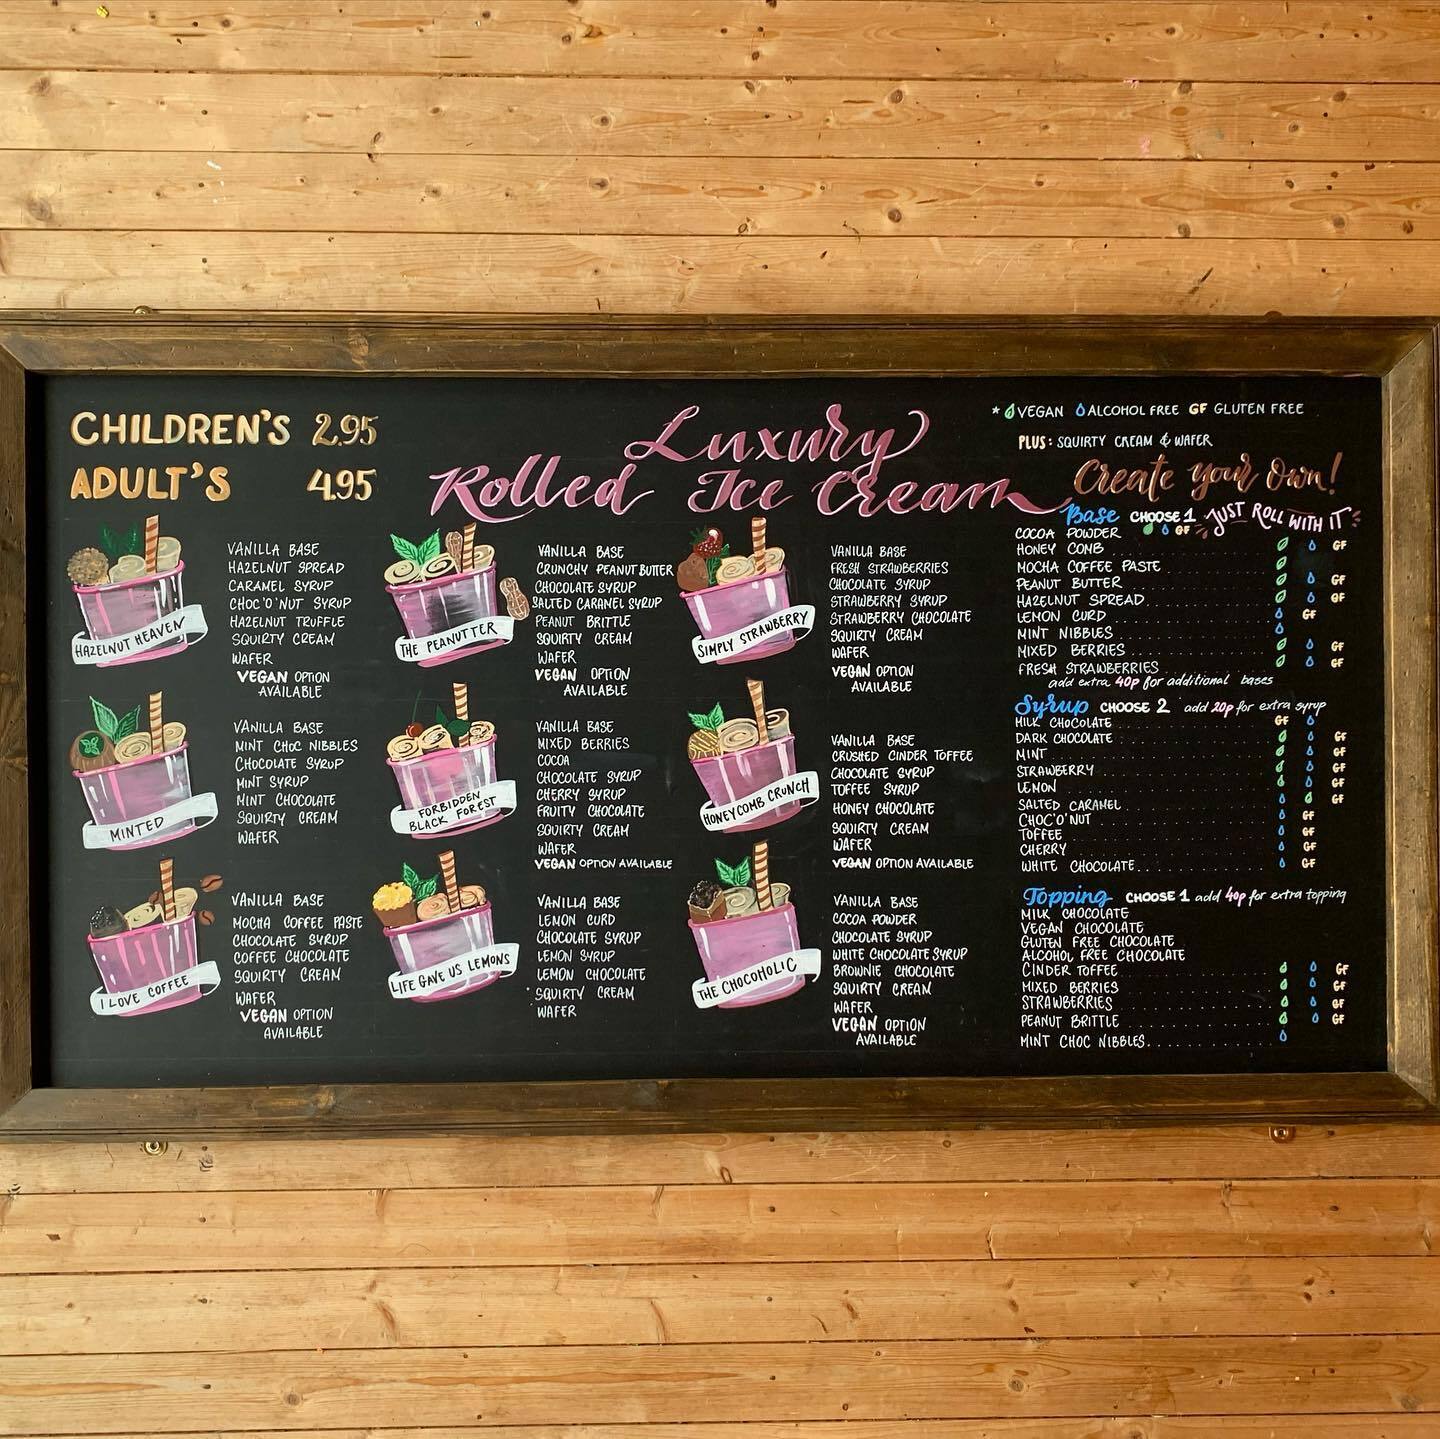 CHILDREN'S 2.95
ADULT'S 4.95
Luxury
Rolled Ice Cream
HAZELNUT HEAVEN
VANILLA BASE
HAZELNUT SPREAD
CARAMEL SYRUP
CHOC'O'NUT SYRUP
HAZELNUT TRUFFLE
SQUIRTY CREAM
WAFER
VEGAN OPTION
AVAILABLE
THE PEANUTTER
VANILLA BASE
CRUNCHY PEANUT BUTTER
CHOCOLATE SYRUP
SALTED CARAMEL SYRUP
PEANUT BRITTLE
SQUIRTY CREAM
WAFER
VEGAN OPTION
AVAILABLE
SIMPLY STRAWBERRY
VANILLA BASE
FRESH STRAWBERRIES
CHOCOLATE SYRUP
STRAWBERRY SYRUP
STRAWBERRY CHOCOLATE
SQUIRTY CREAM
WAFER
VEGAN OPTION
AVAILABLE
MINTED
VANILLA BASE
MINT CHOC NIBBLES
CHOCOLATE SYRUP
MINT SYRUP
MINT CHOCOLATE
SQUIRTY CREAM
WAFER
FORBIDDEN
BLACK FOREST
VANILLA BASE
MIXED BERRIES
COCOA
CHOCOLATE SYRUP
CHERRY SYRUP
FRUITY CHOCOLATE
SQUIRTY CREAM
WAFER
VEGAN OPTION AVAILABLE
HONEYCOMB CRUNCH
VANILLA BASE
CRUSHED CINDER TOFFEE
CHOCOLATE SYRUP
TOFFEE SYRUP
HONEY CHOCOLATE
SQUIRTY CREAM
WAFER
VEGAN OPTION AVAILABLE
I LOVE COFFEE
VANILLA BASE
MOCHA COFFEE PASTE
CHOCOLATE SYRUP
COFFEE CHOCOLATE
SQUIRTY CREAM
WAFER
VEGAN OPTION
AVAILABLE
LIFE GAVE US LEMONS
VANILLA BASE
LEMON CURD
CHOCOLATE SYRUP
LEMON SYRUP
LEMON CHOCOLATE
SQUIRTY CREAM
WAFER
THE CHOCOHOLIC
VANILLA BASE
COCOA POWDER
CHOCOLATE SYRUP
WHITE CHOCOLATE SYRUP
BROWNIE CHOCOLATE
SQUIRTY CREAM
WAFER
VEGAN OPTION
AVAILABLE
* VEGAN ALCOHOL FREE GF GLUTEN FREE
PLUS: SQUIRTY CREAM & WAFER
Create your Own!
Base CHOOSE 1 JUST ROLL WITH IT
COCOA POWDER GF
HONEY COMB GF
MOCHA COFFEE PASTE
PEANUT BUTTER GF
HAZELNUT SPREAD GF
LEMON CURD GF
MINT NIBBLES
MIXED BERRIES GF
FRESH STRAWBERRIES GF
add extra 40p for additional bases
Syrup CHOOSE 2 add 20p for extra syrup
MILK CHOCOLATE GF
DARK CHOCOLATE GF
MINT GF
STRAWBERRY GF
LEMON GF
SALTED CARAMEL GF
CHOC'O'NUT GF
TOFFEE GF
CHERRY GF
WHITE CHOCOLATE GF
Topping CHOOSE 1 add 40p for extra topping
MILK CHOCOLATE
VEGAN CHOCOLATE
GLUTEN FREE CHOCOLATE
ALCOHOL FREE CHOCOLATE
CINDER TOFFEE GF
MIXED BERRIES GF
STRAWBERRIES GF
PEANUT BRITTLE GF
MINT CHOC NIBBLES